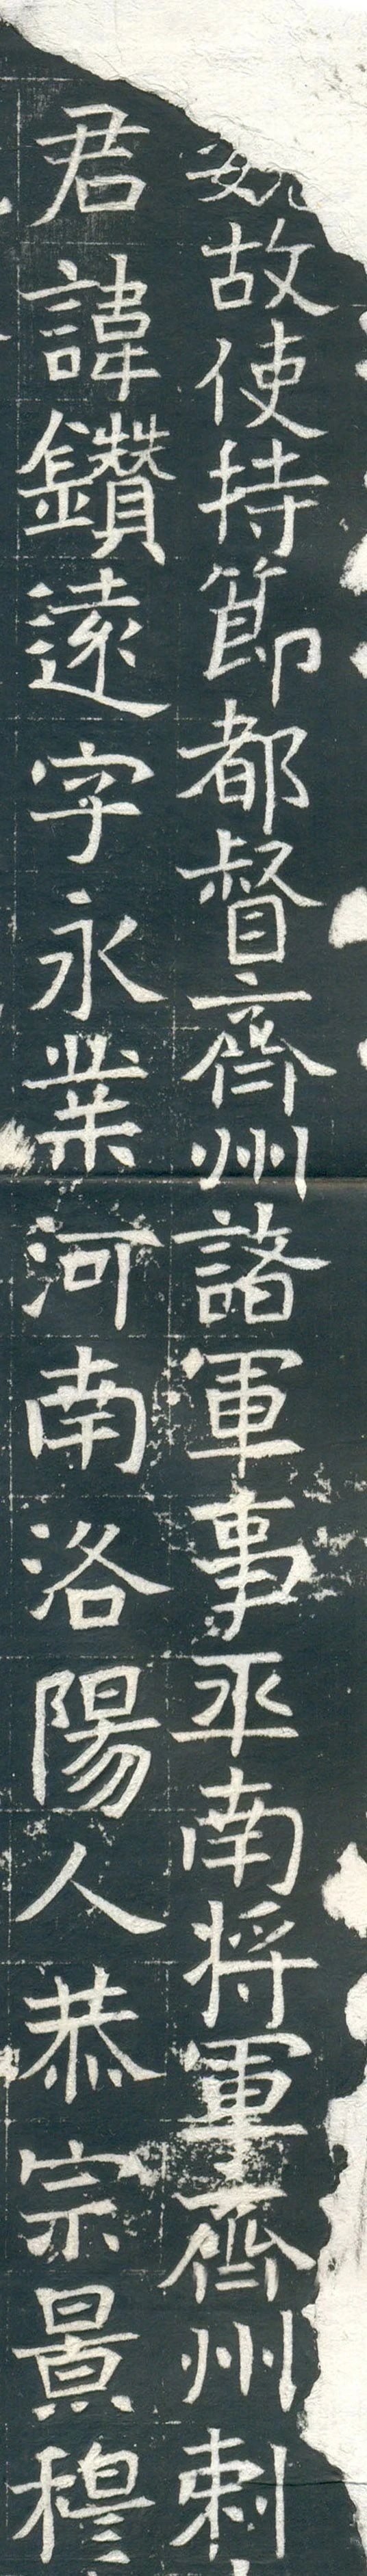 魏故使持節都督齊州諸軍事平南將軍齊州刺
君諱鑽遠字永業河南洛陽人恭宗景穆